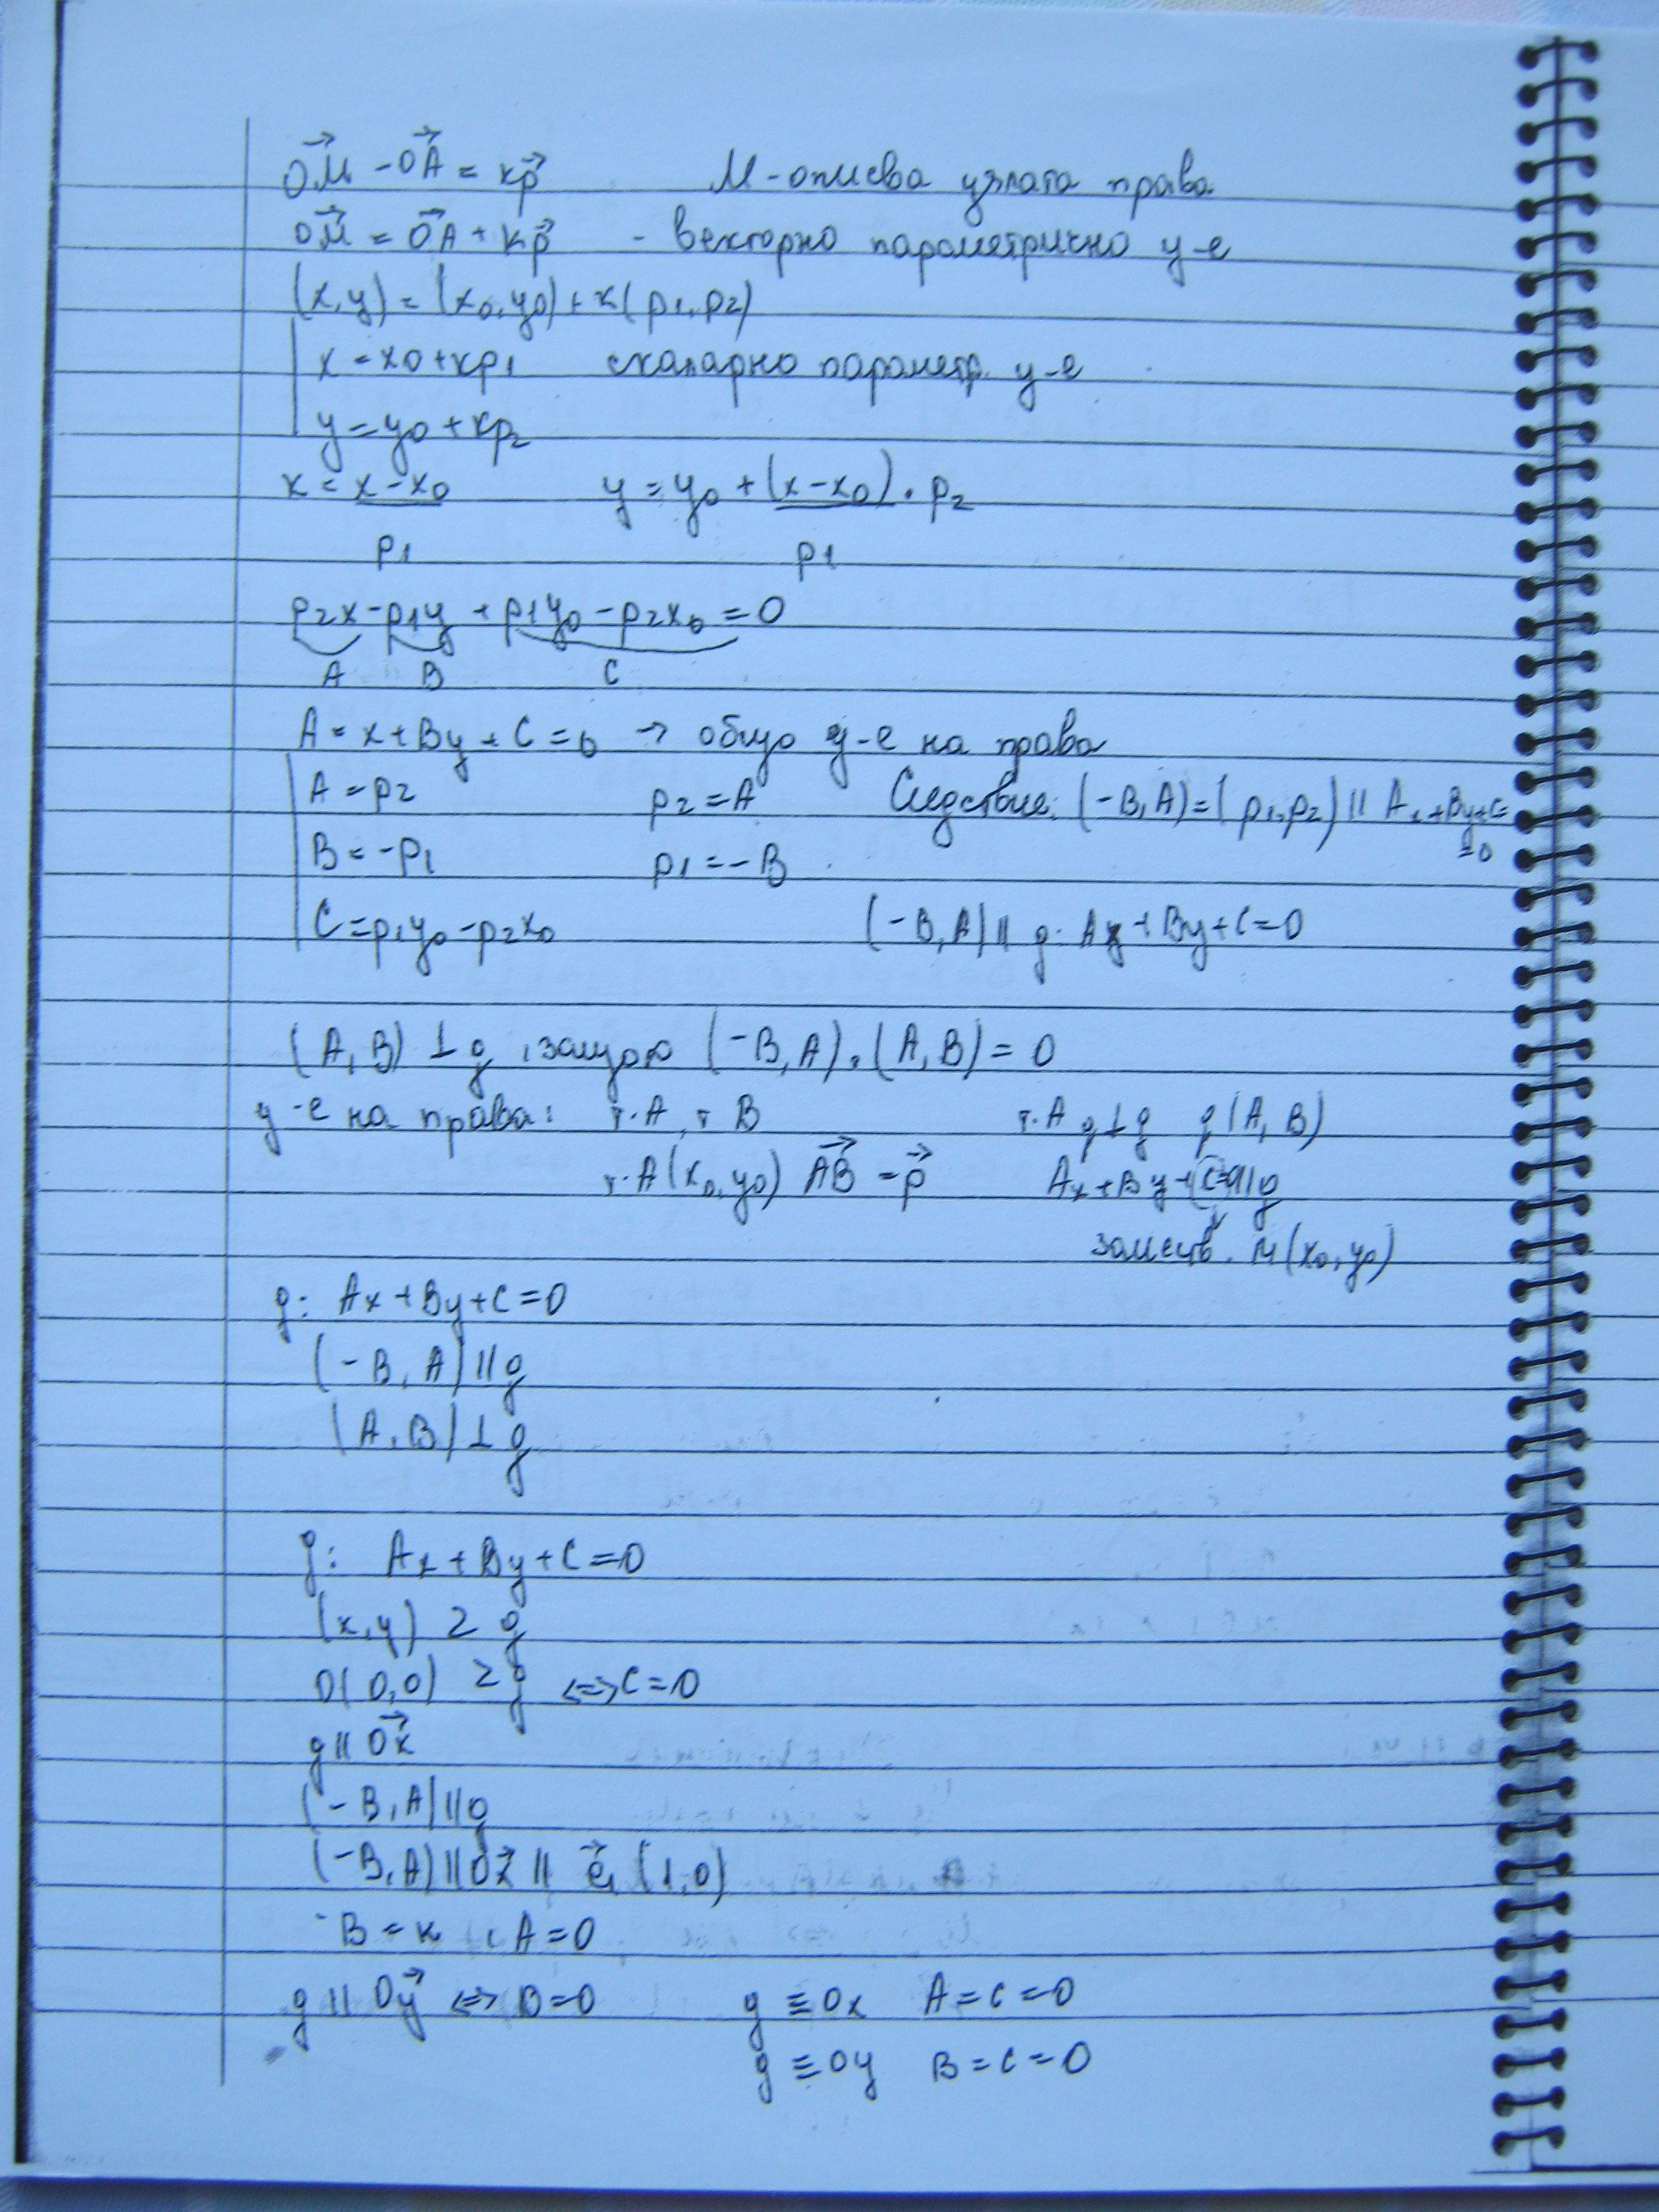 OM⃗ - OA⃗ = kp⃗ M - описва цялата права
OM⃗ = OA⃗ + kp⃗ - векторно параметрично у-е
(x,y) = (x0,y0) + k(p1,p2)
x = x0 + kp1 скаларно параметр. у-е
y = y0 + kp2
k = x - x0 y = y0 + (x - x0) . p2
p1 p1
p2x - p1y + p1y0 - p2x0 = 0
A B C
A = x + By + C = 0 → общо у-е на права
A = p2 p2 = A Следствие: (-B, A) = (p1,p2) || Ax + By + C =
= 0
B = -p1 p1 = -B
C = p1y0 - p2x0 (-B, A) || g: Ax + By + C = 0
(A, B) ⊥ g, защото (-B, A) . (A, B) = 0
у-е на права: т. A, т B т. A q ⊥ g q(A, B)
т. A(x0, y0) AB⃗ = p⃗ Ax + By + C=0 || g
заместв. M(x0, y0)
g: Ax + By + C = 0
(-B, A) || g
(A, B) ⊥ g
g: Ax + By + C = 0
(x,y) Z g
O(0,0) Z g <=> C = 0
g || Ox⃗
(-B, A) || g
(-B, A) || Ox⃗ || e⃗1 (1,0)
-B = k, A = 0
g || Oy⃗ <=> B = 0 g ≡ Ox A = C = 0
g ≡ Oy B = C = 0